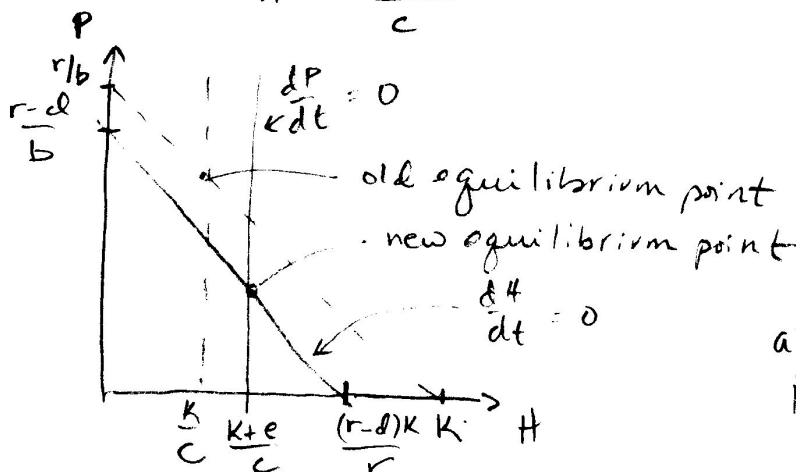 c
P
r/b
r-d
b
dP/dt = 0
old equilibrium point
new equilibrium point
dH/dt = 0
a
k/c
k+e/c
(r-d)K/r
K
H